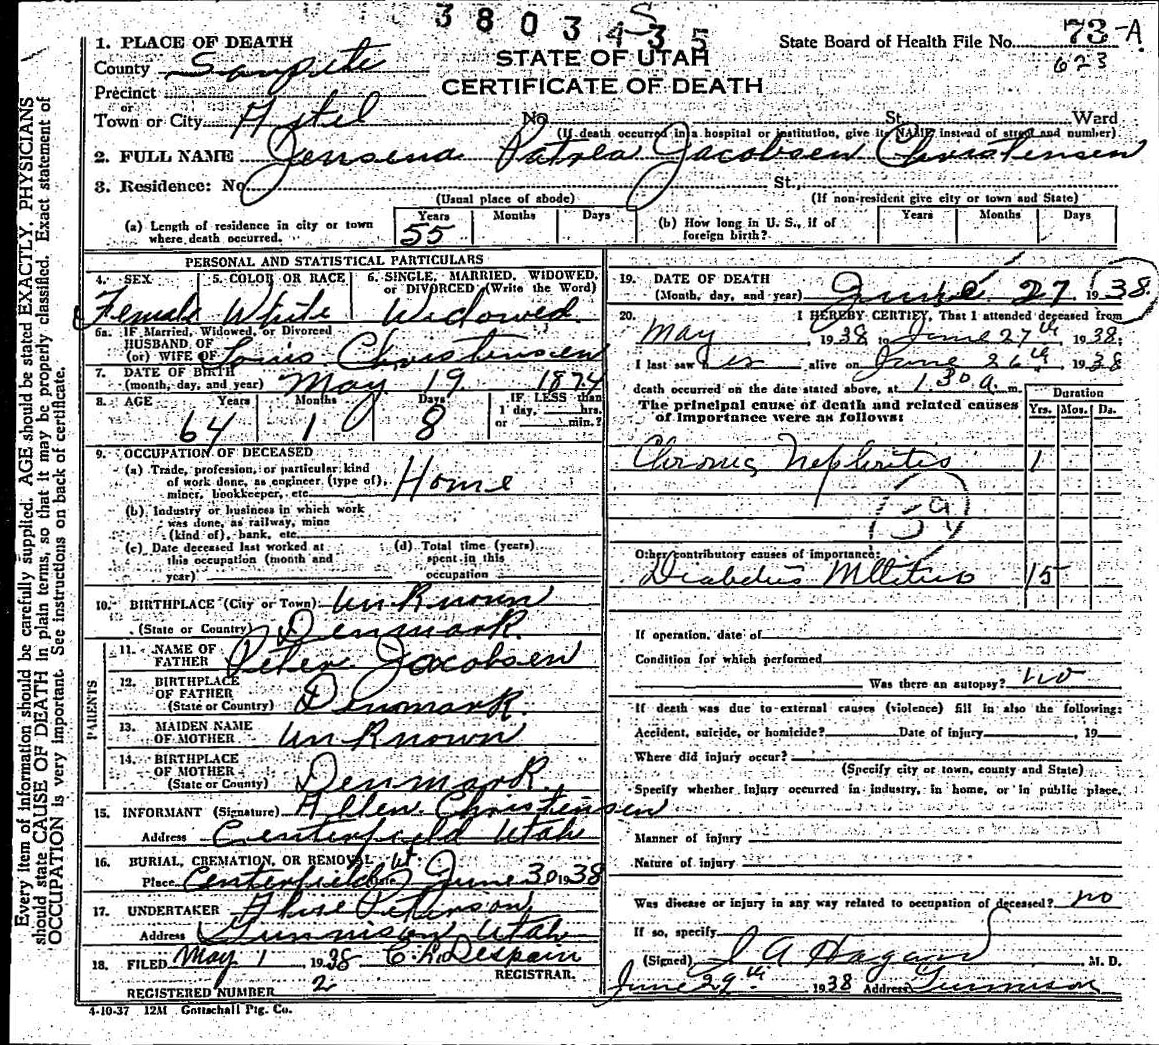 3 8 0 3 4 S 3 5
State Board of Health File No. 73-A
623
STATE OF UTAH
CERTIFICATE OF DEATH
1. PLACE OF DEATH
County Sanpete
Precinct
or
Town or City No. St. Ward
(If death occurred in a hospital or institution, give its NAME instead of street and number)
2. FULL NAME Jensena Patrea Jacobsen Christensen
3. Residence: No. St.,
(Usual place of abode) (If non-resident give city or town and State)
(a) Length of residence in city or town where death occurred. Years 55 Months Days
(b) How long in U. S., if of foreign birth? Years Months Days
PERSONAL AND STATISTICAL PARTICULARS
4. SEX Female
5. COLOR OR RACE White
6. SINGLE, MARRIED, WIDOWED, or DIVORCED (Write the Word) Widowed
6a. IF Married, Widowed, or Divorced
HUSBAND OF
(or) WIFE OF Louis Christensen
7. DATE OF BIRTH
(month, day, and year) May 19 1874
8. AGE Years 64 Months 1 Days 8 IF LESS than 1 day, hrs. or min.?
9. OCCUPATION OF DECEASED
(a) Trade, profession, or particular kind
of work done, as engineer (type of),
miner, bookkeeper, etc. Home
(b) Industry or business in which work
was done, as railway, mine
(kind of), bank, etc.
(c) Date deceased last worked at
this occupation (month and
year)
(d) Total time (years)
spent in this
occupation
10. BIRTHPLACE (City or Town) Unknown
(State or Country) Denmark
PARENTS
11. NAME OF
FATHER Peter Jacobsen
12. BIRTHPLACE
OF FATHER
(State or Country) Denmark
13. MAIDEN NAME
OF MOTHER Unknown
14. BIRTHPLACE
OF MOTHER
(State or County) Denmark
15. INFORMANT (Signature) Allen Christensen
Address Centerfield Utah
16. BURIAL, CREMATION, OR REMOVAL
Place Centerfield Ut Date June 30 1938
17. UNDERTAKER Peterson
Address Gunnison Utah
18. FILED May 1, 1938 C. R. Despain
REGISTRAR.
REGISTERED NUMBER 2
4-10-37 12M Gottschall Ptg. Co.
19. DATE OF DEATH
(Month, day, and year) June 27 1938
20. I HEREBY CERTIFY, That I attended deceased from
May, 1938 to June 27th, 1938;
I last saw her alive on June 26th, 1938
death occurred on the date stated above, at 1 30 a. m.
The principal cause of death and related causes
of importance were as follows:
Duration
Yrs. Mos. Ds.
Chronic Nephritis 1
Other contributory causes of importance:
Diabetus Mllitus 15
If operation, date of
Condition for which performed
Was there an autopsy? no
If death was due to external causes (violence) fill in also the following:
Accident, suicide, or homicide? Date of injury , 19
Where did injury occur?
(Specify city or town, county and State)
Specify whether injury occurred in industry, in home, or in public place.
Manner of injury
Nature of injury
Was disease or injury in any way related to occupation of deceased? no
If so, specify
(Signed) J A Hagan, M. D.
June 29th 1938 Address Gunnison
Every item of information should be carefully supplied. AGE should be stated EXACTLY. PHYSICIANS
should state CAUSE OF DEATH in plain terms, so that it may be properly classified. Exact statement of
OCCUPATION is very important. See instructions on back of certificate.